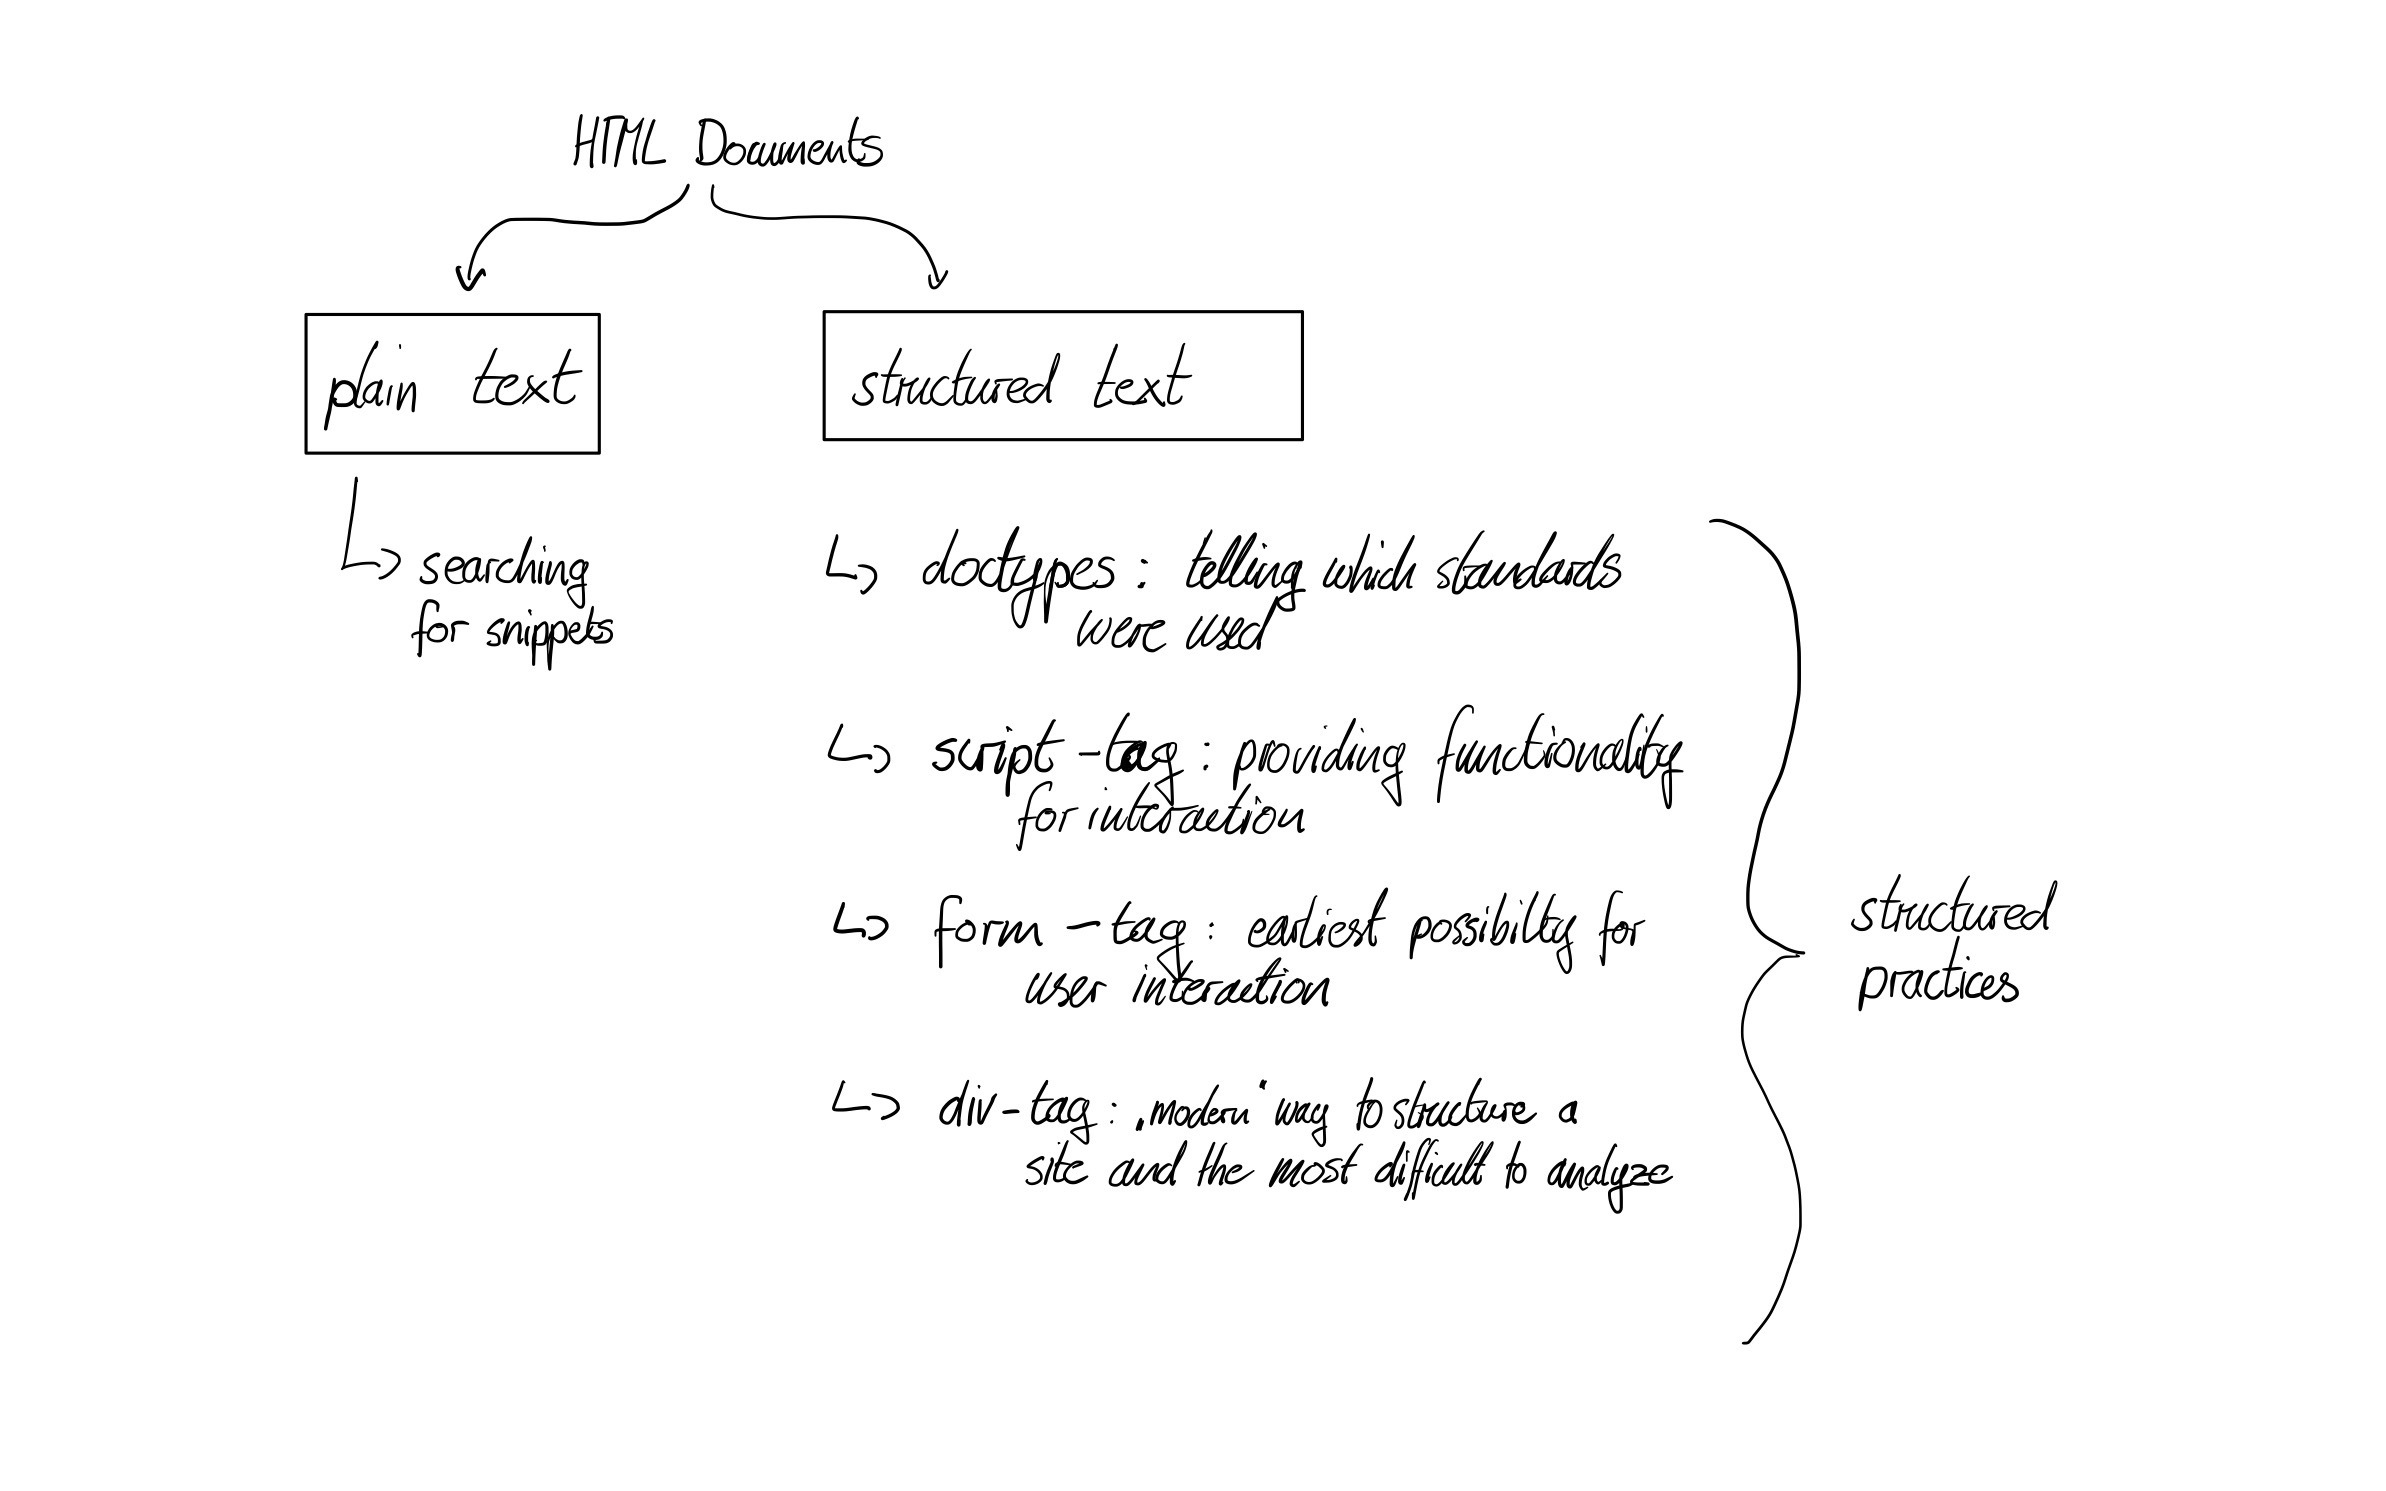 HTML Documents
plain text
structured text
searching
for snippets
doctypes : telling which standards
were used
script-tag : providing functionality
for interaction
form-tag : earliest possibilty for
user interaction
div-tag : „modern“ way to structure a
site and the most difficult to analyze
structured
practices